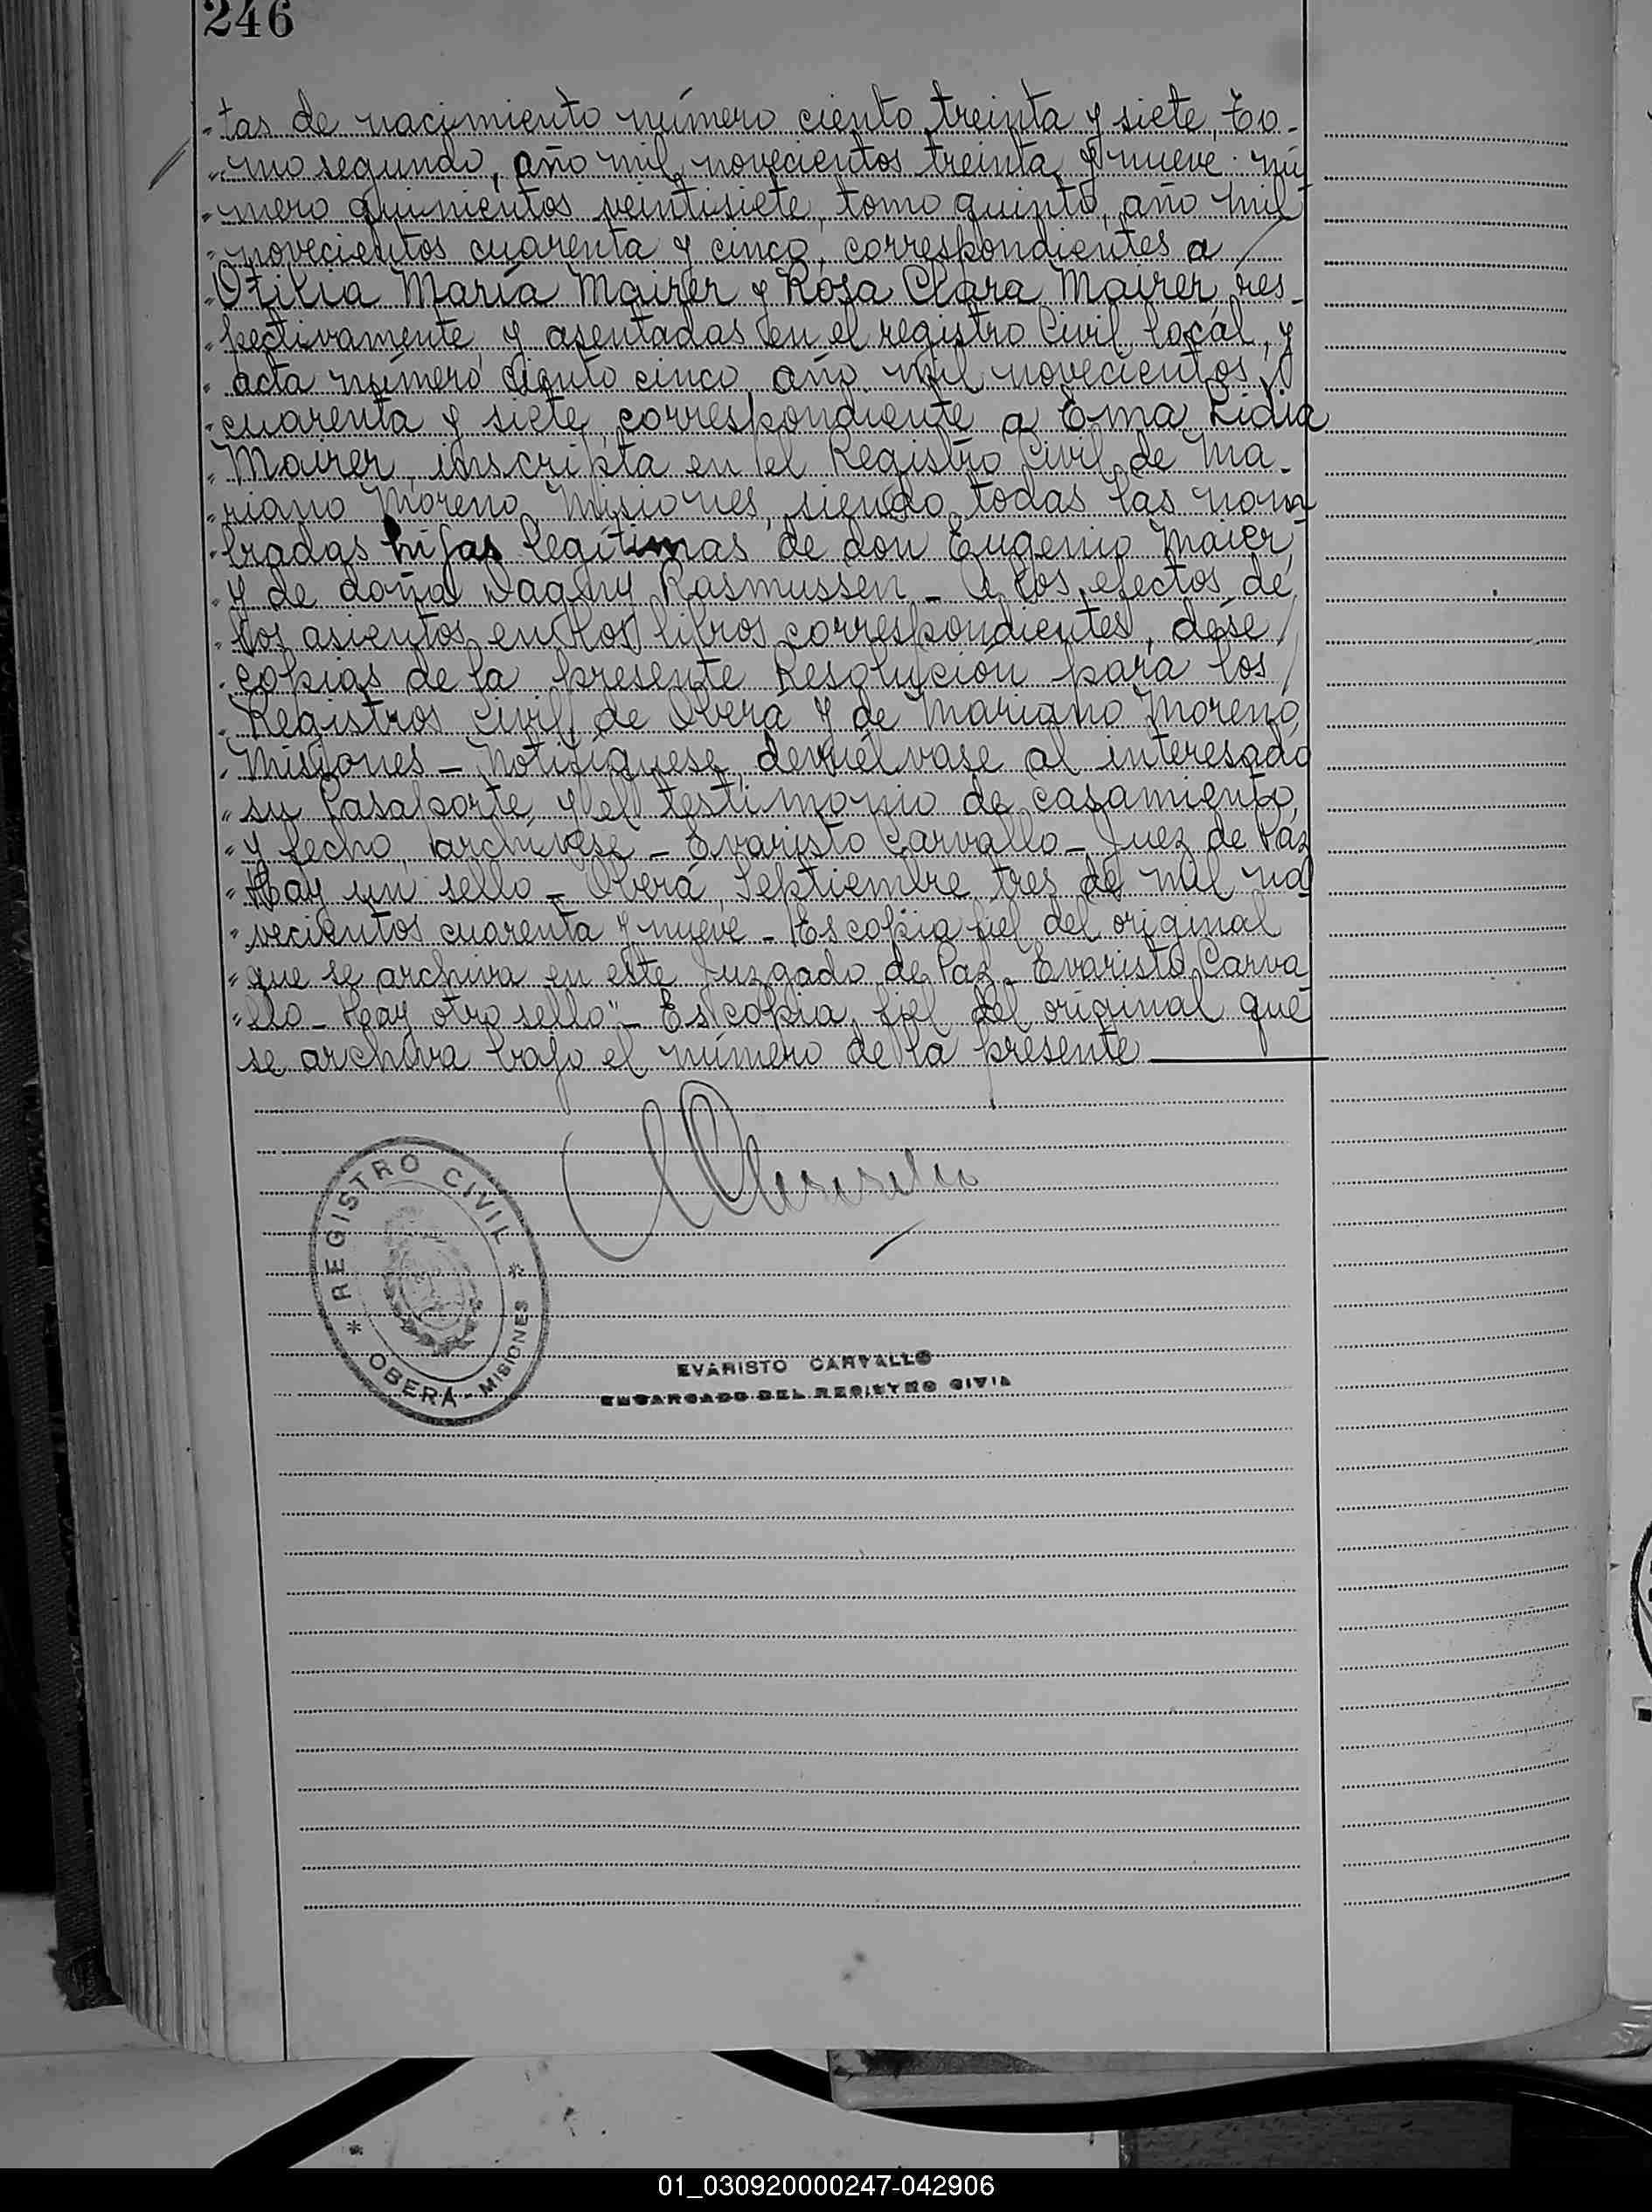 246
"tas de nacimiento número ciento treinta y siete, To-
"mo segundo, año mil novecientos treinta y nueve. nú
"mero quinientos veintisiete, tomo quinto, año mil
"novecientos cuarenta y cinco, correspondientes a
"Otilia María Mairer y Rosa Clara Mairer, res-
"pectivamente, y asentadas en el registro Civil local, y
"acta número ciento cinco, año mil novecientos
"cuarenta y siete, correspondiente a Ema Lidia
"Mairer, inscripta en el Registro Civil de Ma-
"riano Moreno, Misiones, siendo todas las nom
"bradas hijas legítimas de don Eugenio Maier,
"y de doña Dagny Rasmussen - A los efectos de
"los asientos en los libros correspondientes, dése
"copias de la presente Resolución para los
"Registros Civil de Oberá y de Mariano Moreno,
"Misiones - Notifíquese, devuélvase al interesado
"su Pasaporte y el testimonio de casamiento,
"y fecho, archívese - Evaristo Carvallo - Juez de Páz
"Hay un sello - Oberá, Septiembre tres de mil no
"vecientos cuarenta y nueve - Es copia fiel del original
"que se archiva en este Juzgado de Paz - Evaristo Carva
"llo - Hay otro sello" - Es copia fiel del original que
se archiva bajo el número de la presente
REGISTRO CIVIL
* OBERÁ - MISIONES *
EVARISTO CARVALLO
ENCARGADO DEL REGISTRO CIVIL
01_030920000247-042906